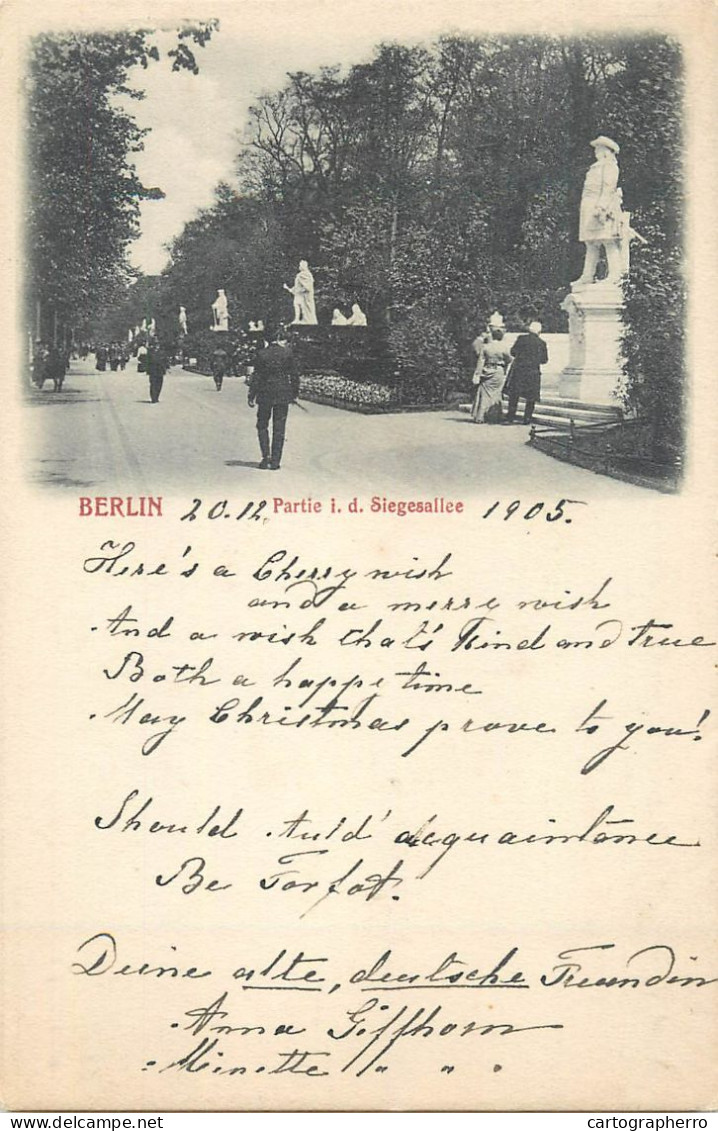 BERLIN 20.12. Partie i. d. Siegesallee 1905.
Here's a Cherry wish
and a merry wish
And a wish that's Kind and True
Both a happy time
May Christmas prove to you!
Should Auld' acquaintance
Be Forgot.
Deine alte, deutsche Freundin
Anna Giffhorn
Minette " " "
delcampe.net
cartographerro